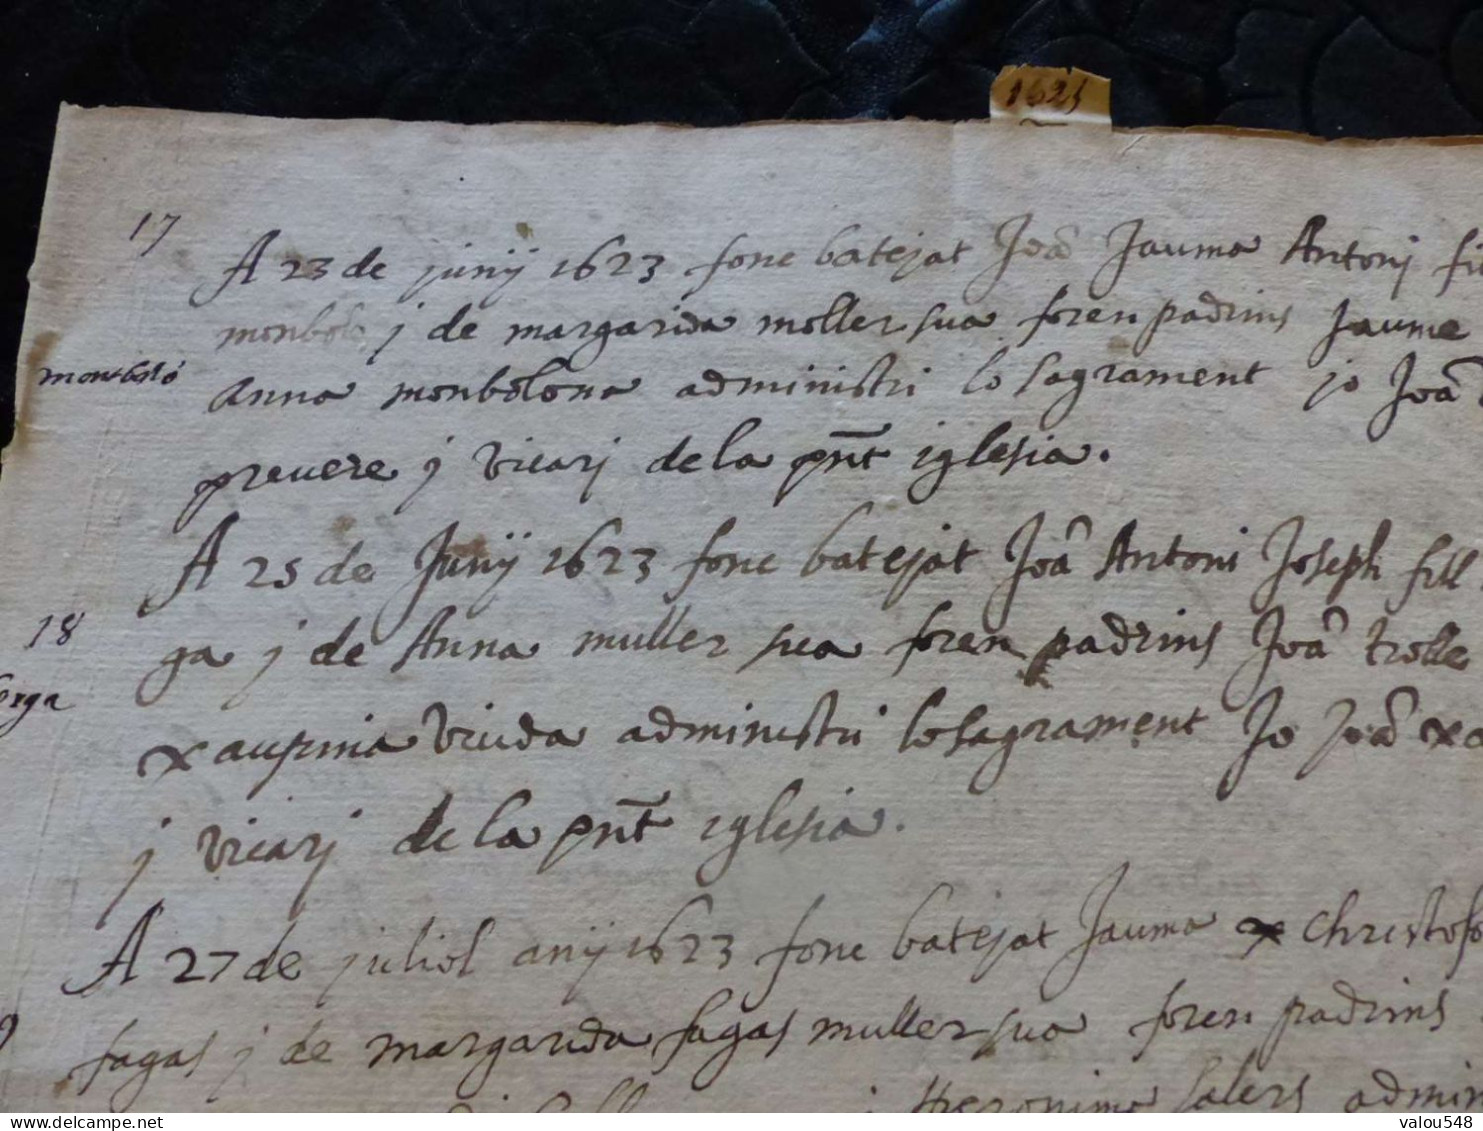 1625
17
A 23 de junÿ 1623 fonc batejat Joã Jauma Antonj
monbolo j de margarida moller sua foren padrins Jaume
monbolo
anna monbolona administri lo sagrament jo Joã
preuere j vicarj de la pñt iglesia.
A 25 de Junÿ 1623 fonc batejat Joã Antoni Joseph fill
18
ga j de Anna muller sua foren padrins Joã trolle
orga
xaupina viuda administri lo sagrament Jo Joã
j vicarj de la pñt iglesia.
A 27 de juliol anÿ 1623 fonc batejat Jauma x christofo
fagas j de margarida fagas muller sua foren padrins
Hieronima salers admin
valou548